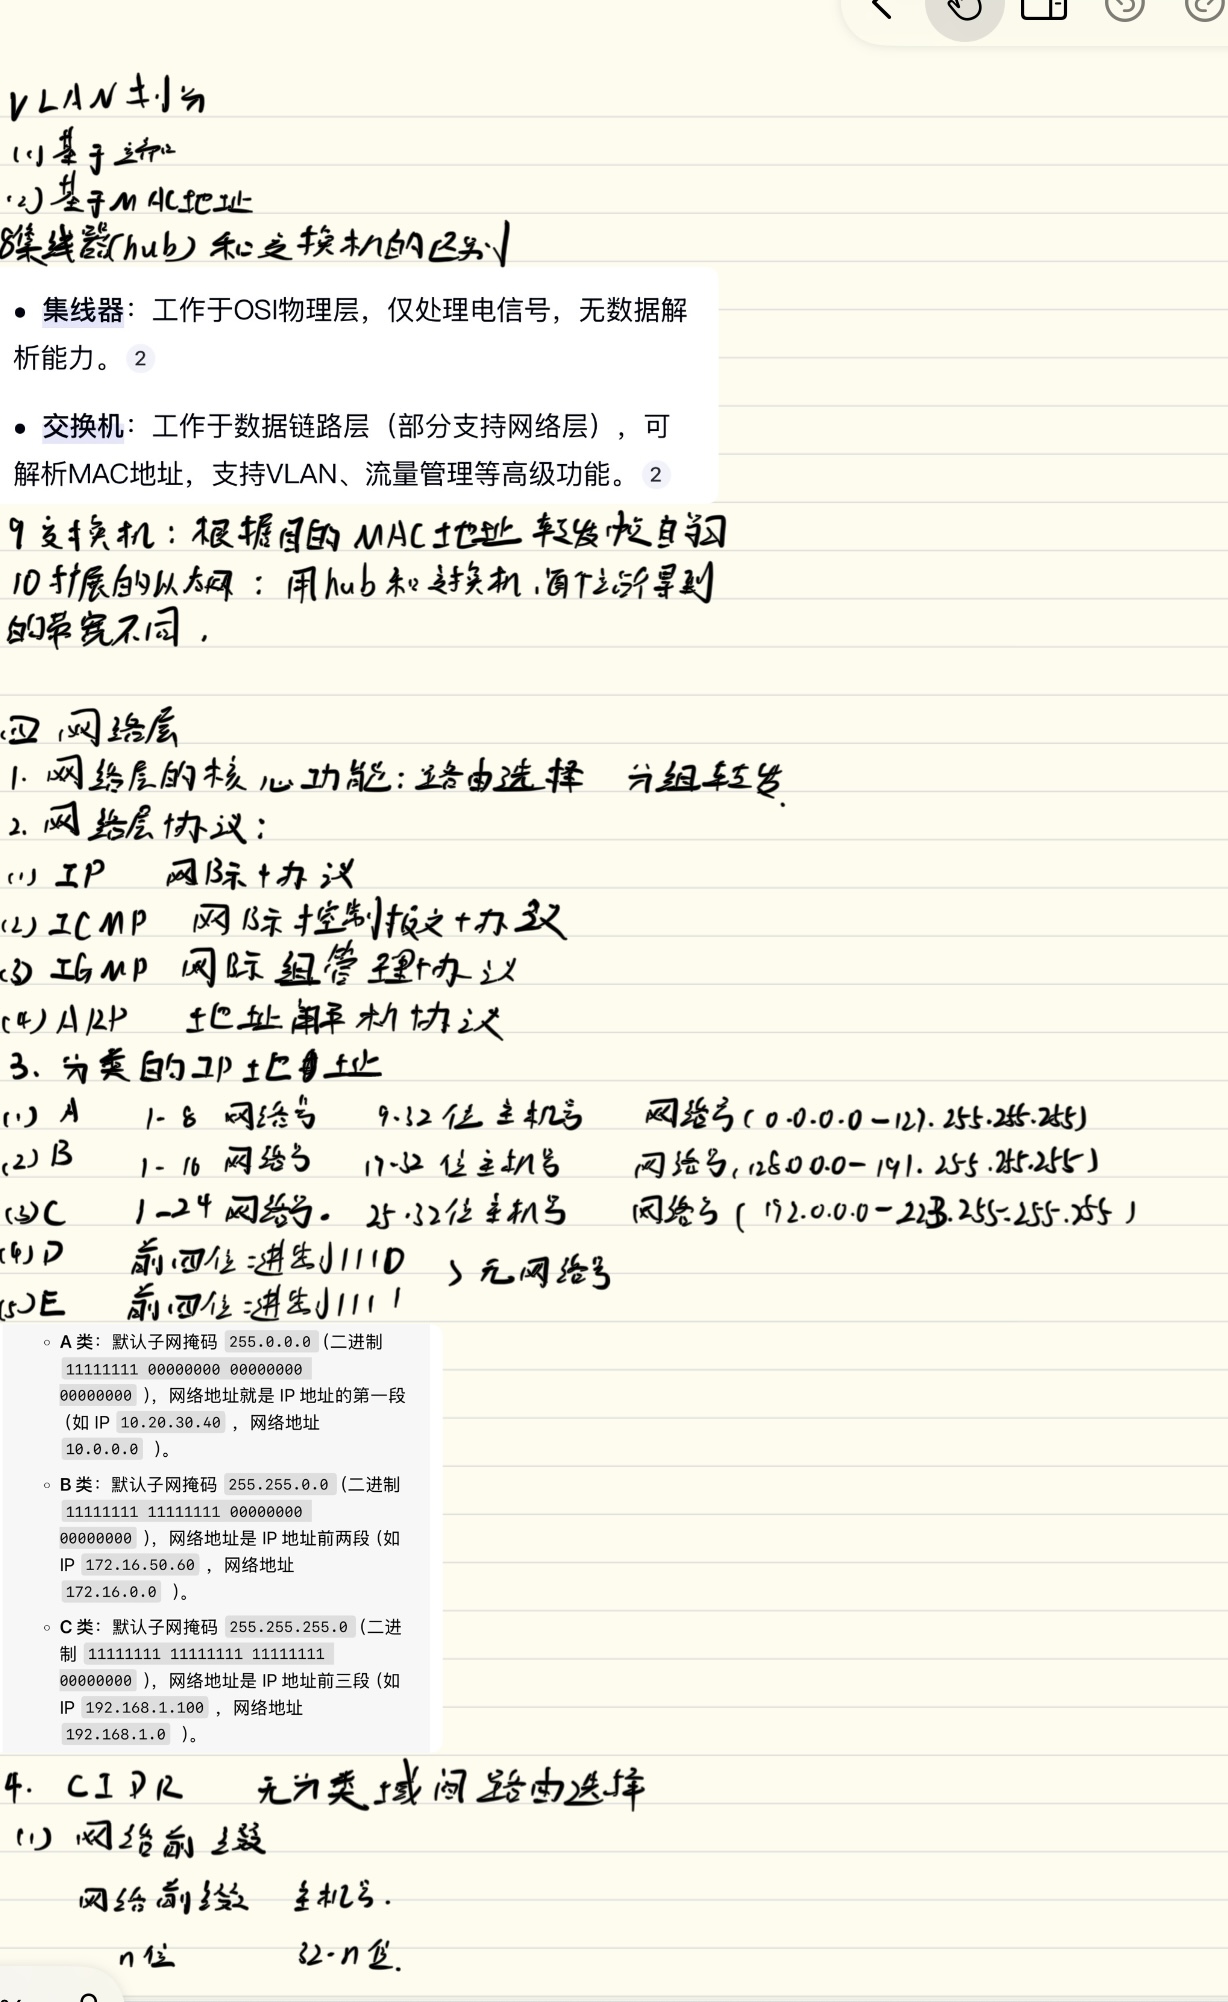 VLAN划分
(1)基于端口
(2)基于MAC地址
8集线器(hub)和交换机的区别
• 集线器：工作于OSI物理层，仅处理电信号，无数据解
析能力。 2
• 交换机：工作于数据链路层（部分支持网络层），可
解析MAC地址，支持VLAN、流量管理等高级功能。 2
9 交换机：根据目的MAC地址 转发帧
10扩展的以太网：用hub和交换机,每个主所得到
的带宽不同.
四 网络层
1. 网络层的核心功能：路由选择 分组转发.
2. 网络层协议：
(1) IP 网际协议
(2) ICMP 网际控制报文协议
(3) IGMP 网际组管理协议
(4) ARP 地址解析协议
3. 分类的IP地址
(1) A 1-8 网络号 9-32位主机号 网络号(0.0.0.0-127.255.255.255)
(2) B 1-16 网络号 17-32位主机号 网络号(128.0.0.0-191.255.255.255)
(3) C 1-24 网络号. 25-32位主机号 网络号(192.0.0.0-223.255.255.255)
(4) D 前四位二进制1110 > 无网络号
(5) E 前四位二进制1111
◦ A 类：默认子网掩码 255.0.0.0 (二进制
11111111 00000000 00000000
00000000 )，网络地址就是 IP 地址的第一段
（如 IP 10.20.30.40 ，网络地址
10.0.0.0 )。
◦ B 类：默认子网掩码 255.255.0.0 (二进制
11111111 11111111 00000000
00000000 )，网络地址是 IP 地址前两段（如
IP 172.16.50.60 ，网络地址
172.16.0.0 )。
◦ C 类：默认子网掩码 255.255.255.0 (二进
制 11111111 11111111 11111111
00000000 )，网络地址是 IP 地址前三段（如
IP 192.168.1.100 ，网络地址
192.168.1.0 )。
4. CIDR 无分类域间路由选择
(1) 网络前缀
网络前缀 主机号.
n位 32-n位.